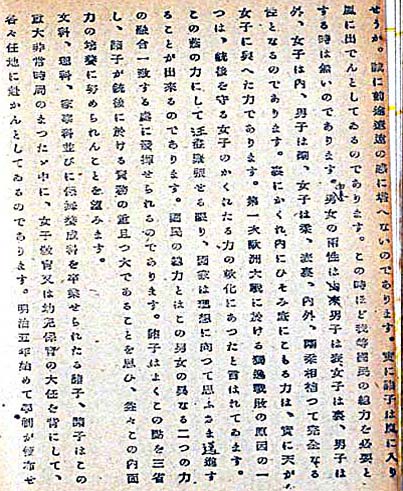 せうか。誠に前途遼遠の感に堪へないのであります。實に諸子は風に入り
風に出でんとしてゐるのであります。この時ほど我等國民の總力を必要と
する時は無いのであります。男女の兩性は由來男子は表女子は裏、男子は
外、女子は内、男子は剛、女子は柔、表裏、内外、剛柔相待つて完全なる
性となるのであります。裏にかくれ内にひそみ底にこもる力は、實に天が
女子に與へた力であります。第一次歐洲大戰に於ける獨逸戰敗の原因の一
つは、銃後を守る女子のかくれたる力の軟化にあつたと言はれてゐます。
この蔭の力にして旺盛緊張せる限り、國家は理想に向つて思ふさま邁進す
ることが出來るのであります。國民の總力とはこの男女の異なる二つの力
の融合一致する處に發揮せられるのであります。諸子はよくこの點を三省
し、諸子が銃後に於ける責務の重且つ大であることを思ひ、益々この内面
力の培養に努められんことを望みます。
文科、理科、家事科並びに保姆養成科を卒業せられたる諸子、諸子はこの
重大非常時局のまつたゞ中に、女子教育又は幼兒保育の大任を背にして、
各々任地に赴かんとしてゐるのであります。明治五年始めて學制が頒布せ